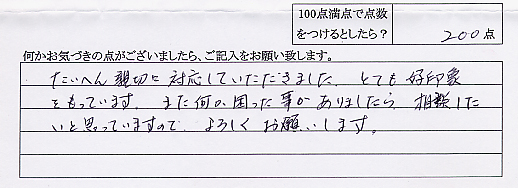 100点満点で点数
をつけるとしたら？
200点
何かお気づきの点がございましたら、ご記入をお願い致します。
たいへん親切に対応していただきました。とても好印象
をもっています。また何か困った事がありましたら相談した
いと思っていますので、よろしくお願いします。